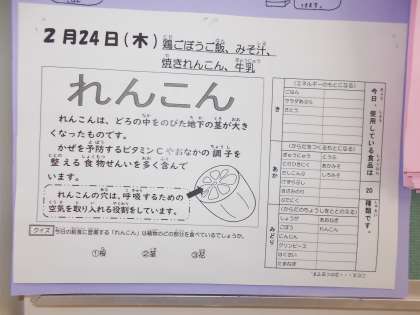 2月24日(木) 鶏ごぼうご飯、みそ汁、
焼きれんこん、牛乳
れんこん
れんこんは、どろの中をのびた地下の茎が大き
くなったものです。
かぜを予防するビタミンCやおなかの調子を
整える食物せんいを多く含んで
います。
れんこんの穴は、呼吸するための
空気を取り入れる役割をしています。
クイズ 今日の給食に登場する「れんこん」は植物のどの部分を食べているでしょうか。
①根 ②茎 ③花
今日、使用している食品は 20 種類です。
き
(エネルギーのもとになる)
ごはん
サラダあぶら
さとう
あか
(からだをつくるもとになる)
ぎゅうにゅう とうふ
とりにく
だいこん
みどり
(からだのちょうしをととのえる)
しょうが
ごぼう れんこん
にんじん
グリンピース
はくさい
たまねぎ